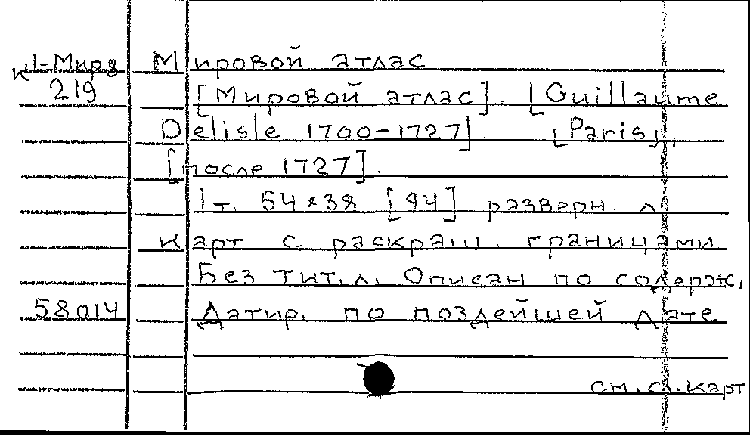 К 1-Мира Мировой атлас
219 [Мировой атлас]. [Guillaume
Delisle 1700-1727] [Paris],
[после 1727].
1 т. 54х38 [94] разверн. л.
карт с раскраш. границами
Без тит. л. Описан по содерж.
58014 Датир. по позднейшей дате
см. сл. карт